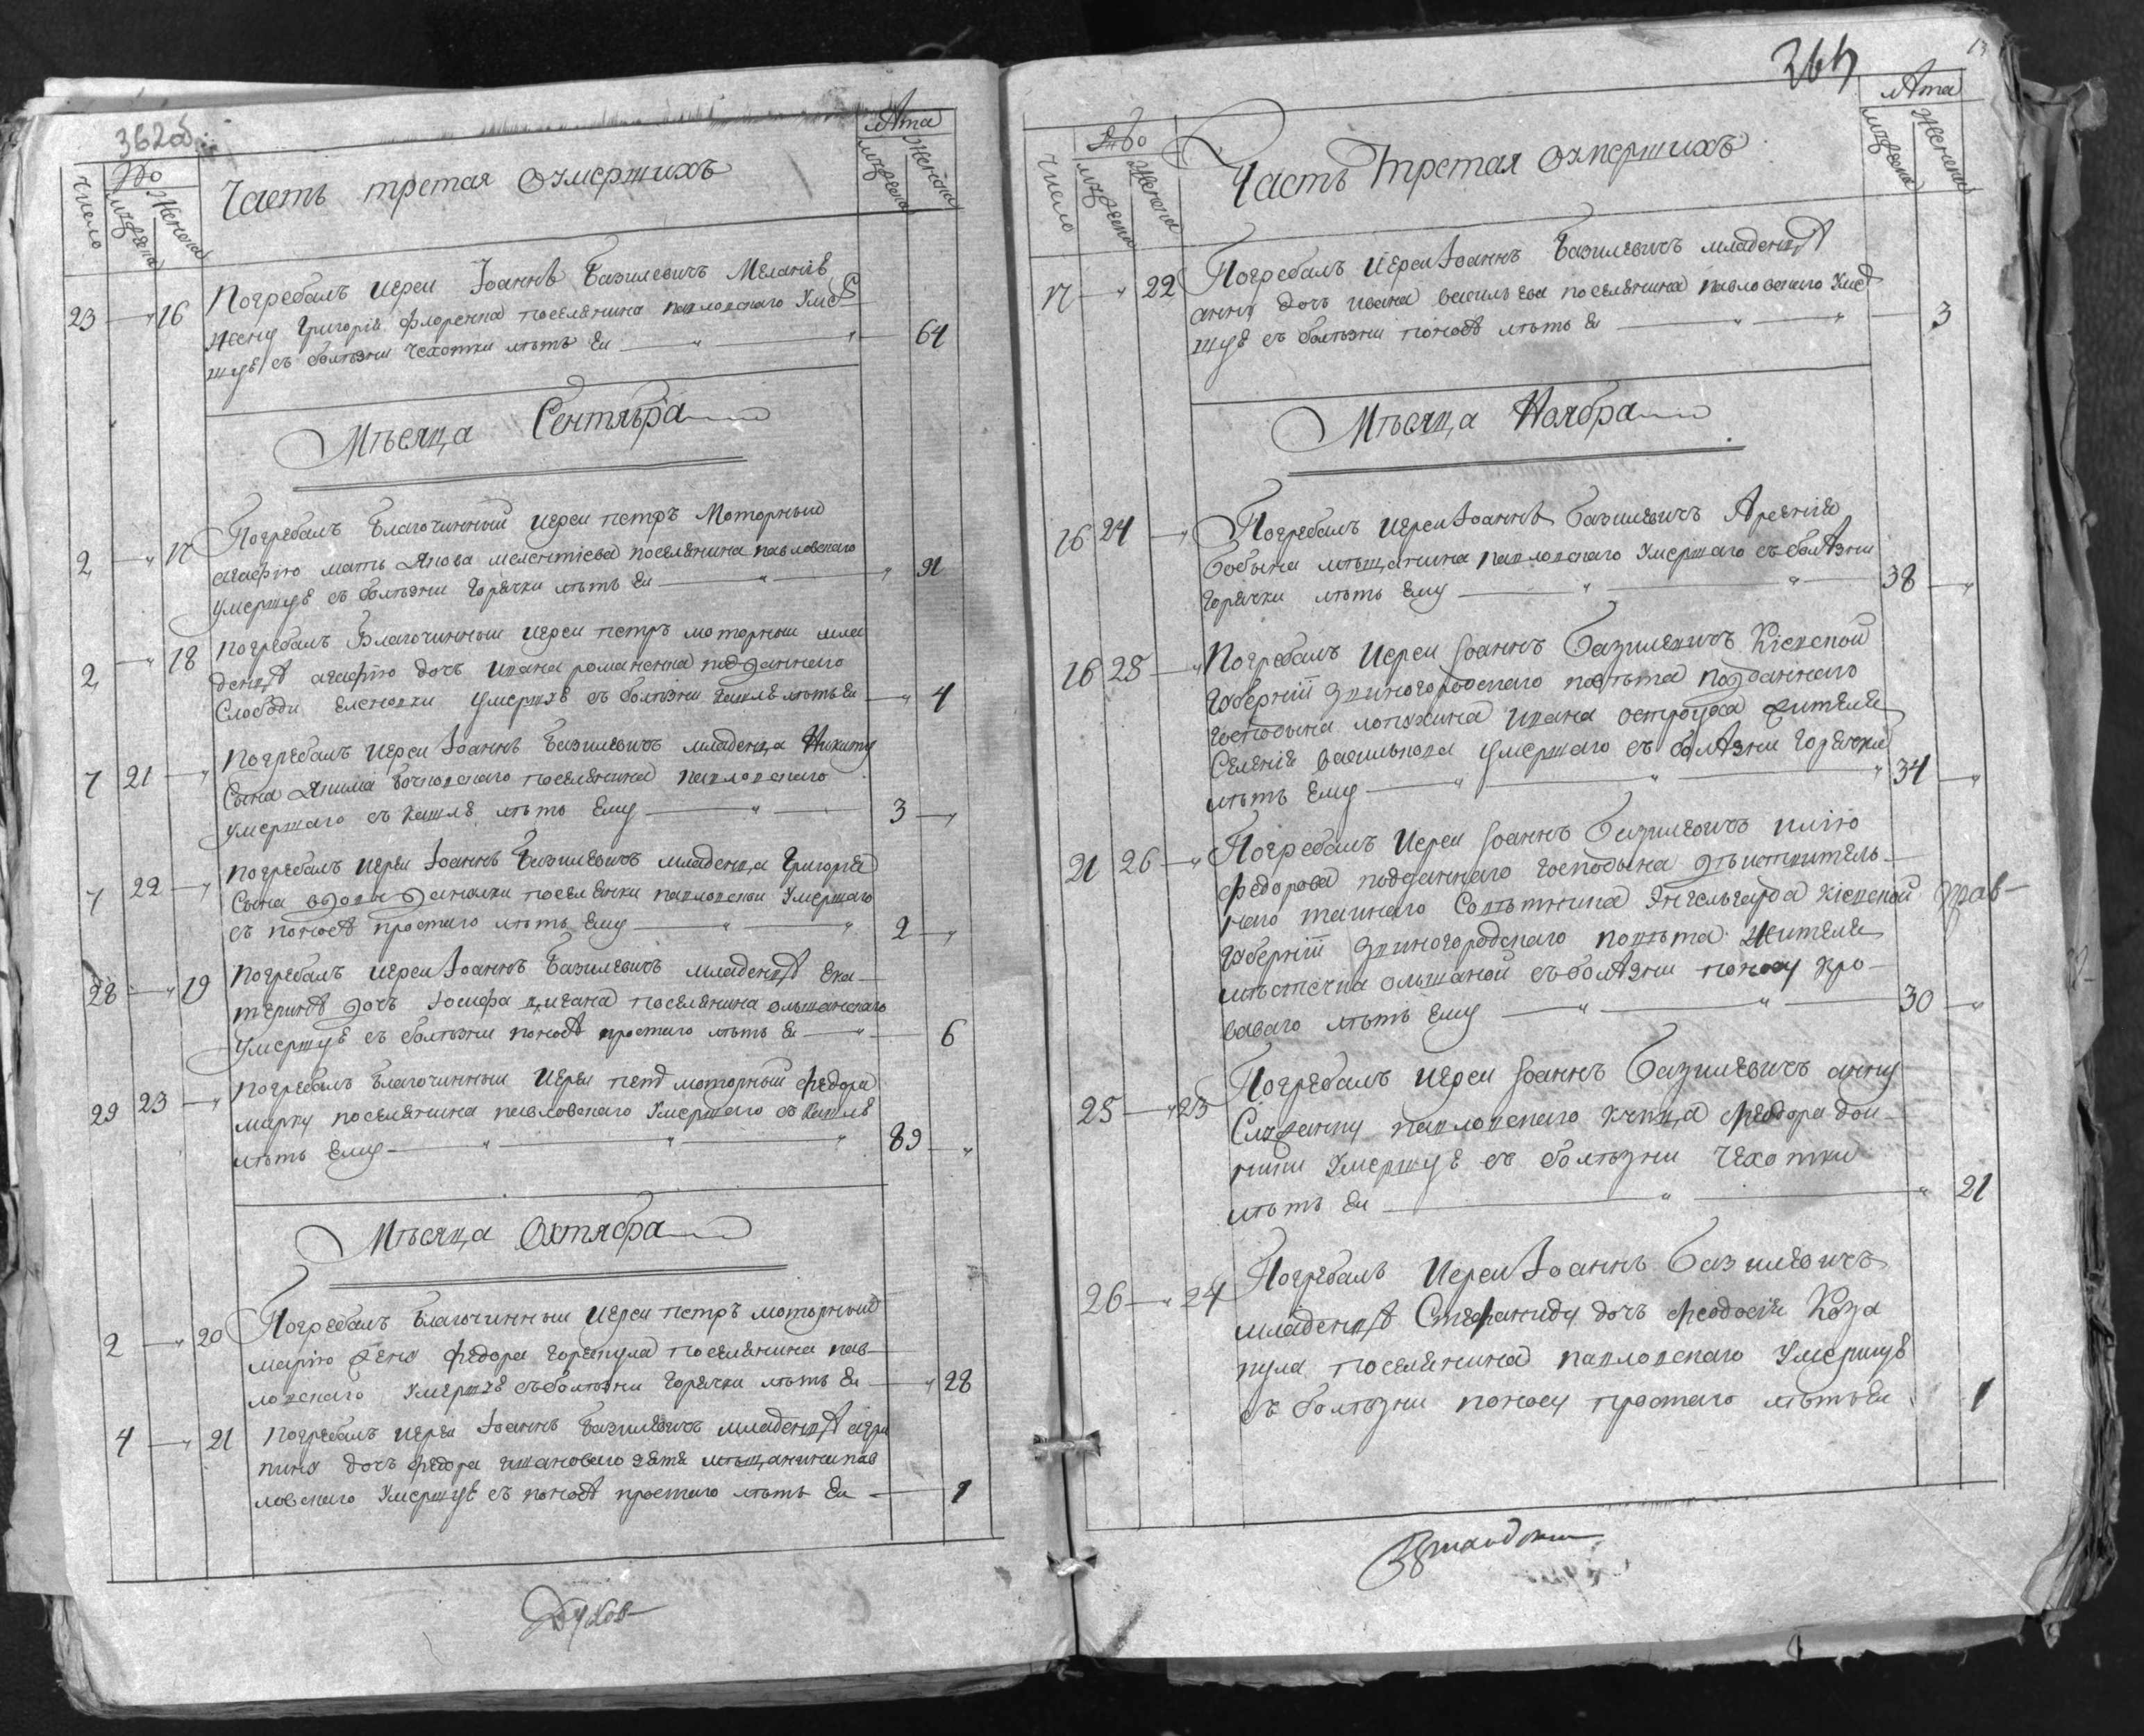 362об
Часть третая оумершихъ
Лѣта
Число
мужеска
Женска
мужеска
Женска
23 16 Погребалъ иереи Іоаннъ Базилевичъ Меланію
жену Григорія Флоренка поселянина павловскаго Умер
шую съ болѣзни чехотки лѣтъ Еи 64
Мѣсяца Сентябра
2 17 Погребалъ Благочинныи иереи петръ Моторныи
агафію мать Якова мелентіева поселянина павловскаго
умершую съ болѣзни горячки лѣтъ Еи 91
2 18 Погребалъ Благочинныи иереи петръ моторныи мла
денца агафію дочъ ивана романенка подданнаго
Слободи Еленовки умершую съ болѣзни кашлю лѣтъ Еи 4
7 21 Погребалъ иереи Іоаннъ Базилевичъ младенца Никиту
Сына Якима Бочковскаго поселянина павловскаго
умершаго съ кашлю лѣтъ Ему 3
7 22 Погребалъ иереи Іоаннъ Базилевичъ младенца Григорія
Сына вдовы поселянки павловскои Умершаго
съ поносу простаго лѣтъ Ему 2
28 19 Погребалъ иереи Іоаннъ Базилевичъ младенца Ека
терину дочъ Іосифа цигана поселянина олшанскаго
Умершую съ болѣзни поносу простаго лѣтъ Еи 6
29 23 Погребалъ Благочинныи Иереи петръ моторныи Федора
марку поселянина павловскаго Умершаго съ кашлю
лѣтъ Ему 89
Мѣсяца Октября
2 20 Погребалъ Благочинныи Иереи петръ моторныи
марію жену Федора поселянина пав
ловскаго Умершую съ болѣзни горячки лѣтъ Еи 28
4 21 Погребалъ иереи Іоаннъ Базилевичъ младенца агри
пину дочъ федора зятя мѣщанина пав
ловскаго Умершую съ поносу простаго лѣтъ Еи 1
264
13
Часть третая оумершихъ
Лѣта
Число
мужеска
Женска
мужеска
Женска
17 22 Погребалъ Иереи Іоаннъ Базилевичъ младенца
анну дочъ ивана васильева поселянина павловскаго Умер
шую съ болѣзни поносу лѣтъ Еи 3
Мѣсяца Ноябра
16 24 Погребалъ иереи Іоаннъ Базилевичъ Арсенія
Бобына мѣщанина павловскаго Умершаго съ болѣзни
горячки лѣтъ Ему 38
16 25 Погребалъ Иереи Іоаннъ Базилевичъ Кіевской
губерніи Звиногородскаго повѣта подданнаго
господина лопухина ивана остроуха жителя
Селенія василькова умершаго съ болѣзни горячки
лѣтъ Ему 34
21 26 Погребалъ Иереи Іоаннъ Базилевичъ илію
федорова подданнаго господина дѣиствитель
наго таинаго Совѣтника Энгельгарда кіевской
губерніи Звиногородскаго повѣта Жителя
мѣстечка олшаной съ болѣзни поносу кро
ваваго лѣтъ Ему 30
25 23 Погребалъ иереи Іоаннъ Базилевичъ анну
Служанку павловскаго купца Феодора дои
ники Умершую съ болѣзни чехотки
лѣтъ Еи 21
26 24 Погребалъ Иереи Іоаннъ Базилевичъ
младенца Стефаниду дочъ феодосія Коза
кула поселянина павловскаго Умершую
съ болѣзни поносу простаго лѣтъ Еи 1